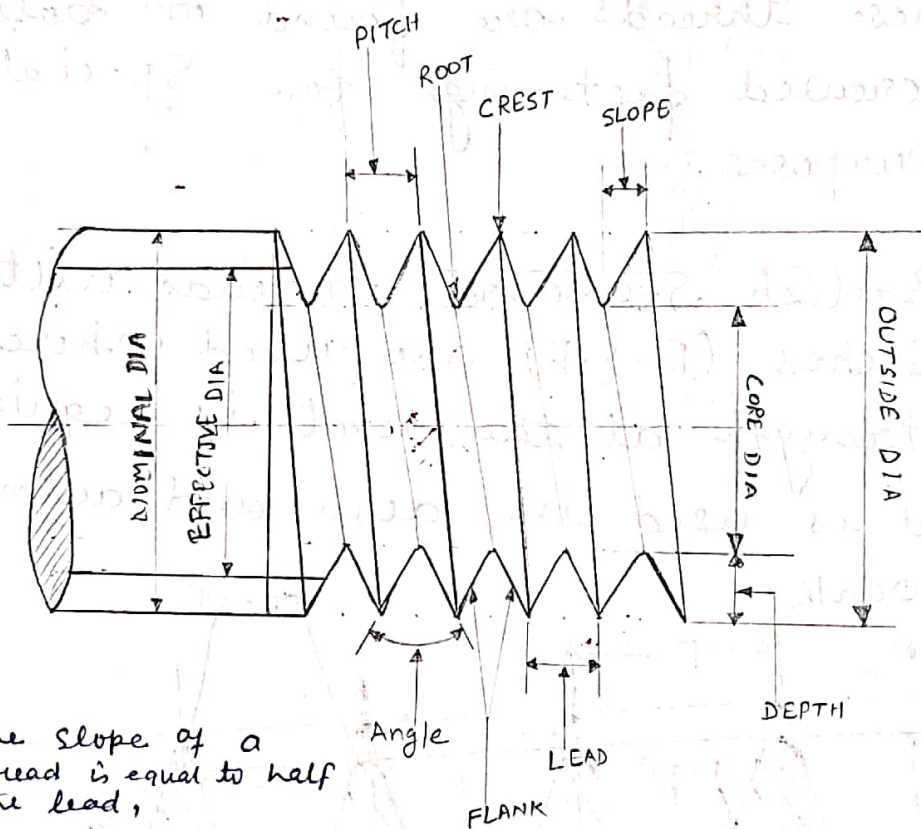 PITCH
ROOT
CREST
SLOPE
NOMINAL DIA
EFFECTIVE DIA
CORE DIA
OUTSIDE DIA
DEPTH
Angle
LEAD
FLANK
slope of a
is equal to half
lead,